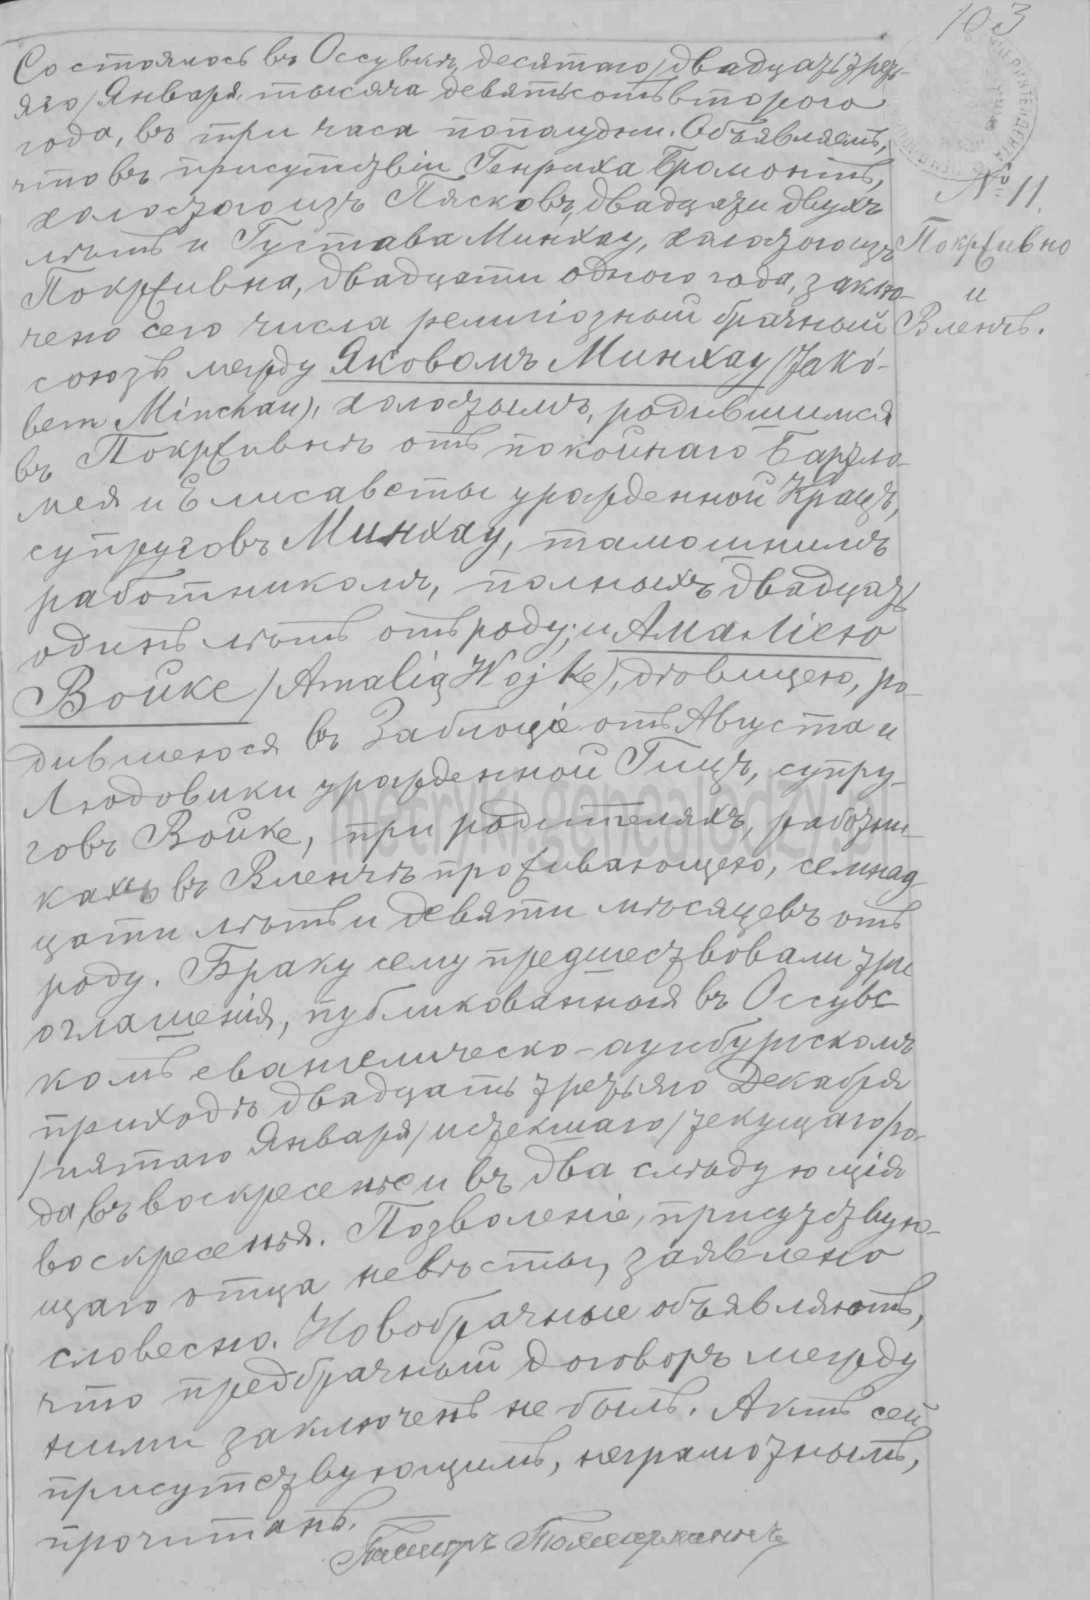 103
Состоялось въ Оссувкѣ, десятаго/двадцать треть-
яго/Января тысяча девятьсотъ второго
года, въ три часа пополудни. Объявляемъ,
что въ присутствіи Генриха Бромонтъ,
холостого изъ Пясковъ, двадцати двухъ
лѣтъ и Густава Минхау, холостого изъ
Покрживна, двадцати одного года, заклю-
чено сего числа религіозный брачный
союзъ между Яковомъ Минхау (Jako-
bem Minchau), холостымъ, родившимся
въ Покрживнѣ отъ покойнаго Бартло-
мея и Елисаветы урожденной Кращъ,
супруговъ Минхау, тамошнимъ
работникомъ, полныхъ двадцать
одинъ лѣтъ отъ роду; и Амаліею
Войке (Amalią Wojke), дѣвицею, ро-
дившеюся въ Заблоціе отъ Августа и
Людовики урожденной Гицъ, супру-
говъ Войке, при родителяхъ, работни-
кахъ въ Вленчѣ проживающею, семнад-
цати лѣтъ и девяти мѣсяцевъ отъ
роду. Браку сему предшествовали три
оглашенія, публикованныя въ Оссувс-
комъ евангелическо-аугсбургскомъ
приходѣ двадцать третьяго Декабря
/пятаго Января/истекшаго/текущаго/го-
да, въ воскресенье и въ два слѣдующія
воскресенья. Позволеніе, присутствую-
щаго отца невѣсты, заявлено
словесно. Новобрачные объявляютъ,
что предбрачный договоръ между
ними заключенъ не былъ. Актъ сей
присутствующимъ, неграмотнымъ,
прочитанъ.
№ 11.
Покрживно
и
Вленчъ.
metryki.genealodzy.pl